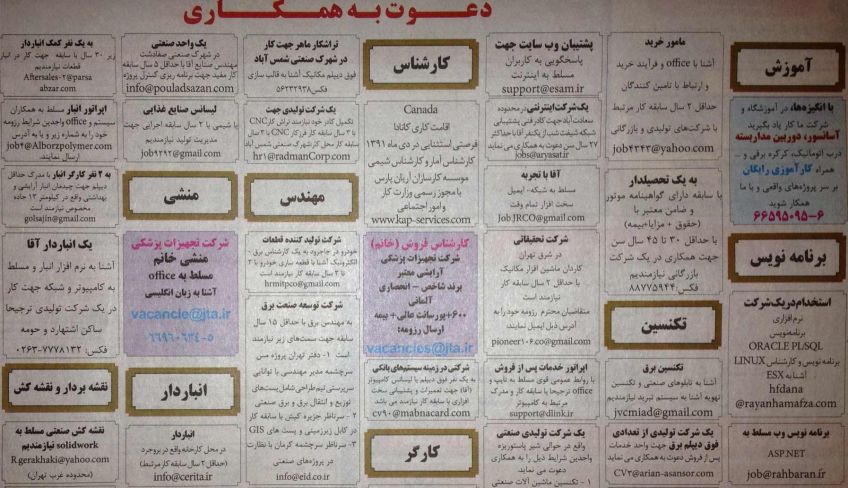 دعوت به همکاری
آموزش
با انگیزه‌ها، در آموزشگاه و
شرکت ما کار یاد بگیرید
آسانسور، دوربین مداربسته
درب اتوماتیک، کرکره برقی و ...
همراه کارآموزی رایگان
بر سر پروژه‌های واقعی و با ما
همکار شوید
۶۶۵۹۵۰۹۵-۶
برنامه نویس
استخدام در یک شرکت
نرم‌افزاری
برنامه‌نویس
ORACLE PL/SQL
برنامه نویس و کارشناس LINUX
آشنا به ESX
hfdana
@rayanhamafza.com
برنامه نویس وب مسلط به
ASP.NET
job@rahbaran.ir
مامور خرید
آشنا با office و فرآیند خرید
و ارتباط با تامین کنندگان
حداقل ۲ سال سابقه کار مرتبط
با شرکت‌های تولیدی و بازرگانی
job4343@yahoo.com
به یک تحصیلدار
با سابقه دارای گواهینامه موتور
و ضامن معتبر با
(حقوق + مزایا + بیمه)
با حداقل ۳۰ تا ۴۵ سال سن
جهت همکاری در یک شرکت
بازرگانی نیازمندیم
فکس: ۸۸۷۷۵۹۴۴
تکنسین
تکنسین برق
آشنا به تابلوهای صنعتی و تکنسین
تهویه آشنا به سیستم تبرید نیازمندیم
jvcmiad@gmail.com
یک شرکت تولیدی از تعدادی
فوق دیپلم برق جهت واحد خدمات
پس از فروش دعوت به همکاری می نماید
CV2@arian-asansor.com
پشتیبان وب سایت جهت
پاسخگویی به کاربران
مسلط به اینترنت
support@esam.ir
یک شرکت اینترنتی در محدوده
سعادت آباد جهت کادر فنی پشتیبانی
شبکه شیفت شب از یکنفر آقا با حداکثر
۲۷ سال سن دعوت به همکاری می نماید
jobs@aryasat.ir
آقا با تجربه
مسلط به شبکه- ایمیل
سخت افزار تمام وقت
Job.JRCO@gmail.com
شرکت تحقیقاتی
در شرق تهران
کاردان ماشین افزار مکانیک
با حداقل ۲ سال سابقه کار
نیازمند است
متقاضیان محترم رزومه خود را به
آدرس ذیل ایمیل نمایند
pioneer1060@gmail.com
اپراتور خدمات پس از فروش
با روابط عمومی قوی مسلط به تایپ و
office ترجیحا با سابقه کار و مدرک
مرتبط به کامپیوتر
support@dlink.ir
یک شرکت تولیدی صنعتی
واقع در حوالی شیر پاستوریزه
واجدین شرایط ذیل را به همکاری
دعوت می نماید
۱- تکنسین ماشین آلات صنعتی
کارشناس
Canada
اقامت کاری کانادا
فرصتی استثنایی در دی ماه ۱۳۹۱
کارشناس آمار و کارشناس شیمی
موسسه کارسازان آریان پارس
با مجوز رسمی وزارت کار
و امور اجتماعی
www.kap-services.com
کارشناس فروش (خانم)
شرکت تجهیزات پزشکی
آرایشی معتبر
برند شاخص - انحصاری
آلمانی
۶۰۰+پورسانت عالی+ بیمه
ارسال رزومه:
vacancies@jta.ir
شرکتی در زمینه سیستم‌های بانکی
به یک نفر فوق دیپلم یا لیسانس کامپیوتر
(آقا) جهت تعمیرات و پشتیبانی سخت
افزاری با سابقه کار نیازمند می باشد
cv90@mabnacard.com
کارگر
تراشکار ماهر جهت کار
در شهرک صنعتی شمس آباد
فوق دیپلم مکانیک آشنا به قالب سازی
فکس: ۵۶۲۳۲۹۳۸
یک شرکت تولیدی جهت
تکمیل کادر خود نیازمند تراش کار CNC
با ۳ سال سابقه کار فرز کار CNC با ۳ سال
سابقه کار محل کار شهرک صنعتی شمس آباد
hr1@radmanCorp.com
مهندس
شرکت تولید کننده قطعات
خودرو در جاجرود به یک کارشناس برق
الکترونیک آشنا با قطعه سازی خودرو با ۲
تا ۳ سال سابقه کار نیازمند است
hrmitpco@gmail.com
شرکت توسعه صنعت برق
به مهندس برق با حداقل ۱۵ سال
سابقه جهت سمت‌های زیر نیازمند
است ۱- دفتر تهران پروژه مس
سرچشمه مدیر مهندسی با توانایی
سرپرستی تیم طراحی شامل پست‌های
توزیع و انتقال برق و برق صنعتی
۲- سرناظر جزیره کیش با سابقه کار
در کابل زیرزمینی و پست های GIS
۳- سرناظر سرچشمه کرمان با نظارت
در پروژه‌های صنعتی
info@eid.co.ir
یک واحد صنعتی
در شهرک صنعتی صفادشت
مهندس صنایع آقا با حداقل ۵ سال سابقه
کار مفید جهت برنامه ریزی کنترل پروژه
info@pouladsazan.com
لیسانس صنایع غذایی
یا شیمی با ۲ سال سابقه اجرایی جهت
مدیریت تولید نیازمندیم
job9292@gmail.com
منشی
شرکت تجهیزات پزشکی
منشی خانم
مسلط به office
آشنا به زبان انگلیسی
vacancie@jta.ir
۶۶۹۶۰۶۳۴-۵
انباردار
انباردار
در محل کارخانه واقع در بروجرد
(حداقل ۲ سال سابقه کار مرتبط)
info@cerita.ir
به یک نفر کمک انباردار
زیر ۳۰ سال با سابقه جهت کار در انبار
قطعات نیازمندیم
Aftersales-2@parsa
abzar.com
اپراتور انبار مسلط به همکاران
سیستم و office واجدین شرایط رزومه
خود را به شماره زیر و یا به آدرس
job4@Alborzpolymer.com
ارسال نمایند.
به ۲ نفر کارگر انبار با مدرک حداقل
دیپلم جهت چیدمان انبار آرایشی و
بهداشتی واقع در کیلومتر ۱۳ جاده
مخصوص نیازمند است
golsajin@gmail.com
یک انباردار آقا
آشنا به نرم افزار انبار و مسلط
به کامپیوتر و شبکه جهت کار
در یک شرکت تولیدی ترجیحا
ساکن اشتهارد و حومه
فکس: ۰۲۶۳-۷۷۷۸۱۳۲
نقشه بردار و نقشه کش
نقشه کش صنعتی مسلط به
solidwork نیازمندیم
R.gerakhaki@yahoo.com
(محدوده غرب تهران)